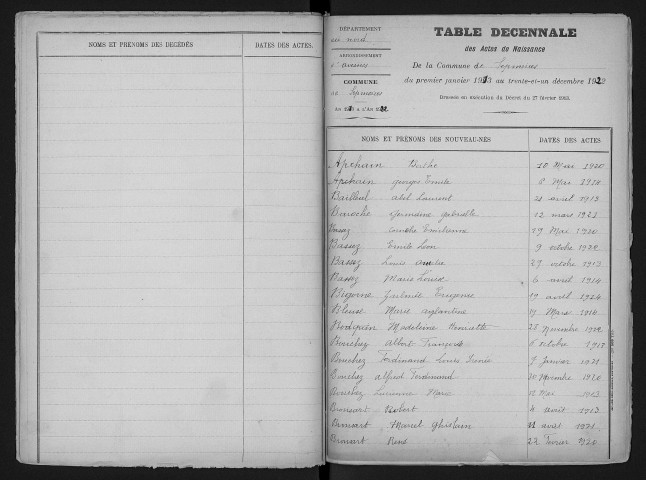 NOMS ET PRÉNOMS DES DÉCÉDÉS DATES DES ACTES.
DÉPARTEMENT
du nord
ARRONDISSEMENT
d'avesnes
COMMUNE
de
TABLE DECENNALE
des Actes de Naissance
De la Commune de
du premier janvier 1913 au trente-et-un décembre 1922
Dressée en exécution du Décret du
NOMS ET PRÉNOMS DES NOUVEAU-NÉS DATES DES ACTES.
Apchain Berthe 10 Mai 1920
Apchain georges Emile 8 Mai 1914
Bailleul abel Laurent 21 avril 1913
germaine gabrielle 12 mars 1921
19 Mai 1920
Bassez Emile Leon 9 octobre 1922
Bassez Louis amélie 27 octobre 1913
Bassez Marie Louise 6 avril 1914
Bigorne 19 avril 1924
Bleuse Marie 19 Mars 1914
Madeleine Henriette 25 Novembre 1922
Bouchez Albert François 6 octobre
Bouchez Ferdinand Louis 9 Janvier 1921
Bouchez alfred Ferdinand 20 Novembre 1920
Bouchez Lucienne Marie 12 Mai 1913
Bronsart Robert 4 août 1913
Bronsart Marcel Ghislain 11 avril 1921
Bronsart René 22 Fevrier 1920